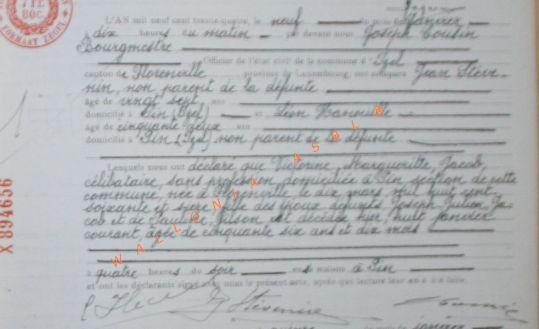 L'AN mil neuf cent trente-quatre, le neuf du mois de Janvier
à dix heures du matin par devant nous Joseph Cousin
Bourgmestre
Officier de l'état civil de la commune d'Izel
canton de Florenville province de Luxembourg, ont comparu Jean Stéve-
nin, non parent de la défunte
âgé de vingt sept ans
domicilié à Pin (Izel) et Léon
âgé de cinquante deux ans
domicilié à Pin (Izel) non parent de la défunte
Lesquels nous ont déclaré que Victorine, Marguerite, Jacob,
célibataire, sans profession, domiciliée à Pin section de cette
commune, née à Florenville, le dix mars mil huit cent
soixante et dix-sept fille des époux défunts Joseph Julien Ja-
cob et de Pauline Gilson est décédée hier huit Janvier
courant, âgée de cinquante six ans et dix mois
à quatre heures du soir en sa maison à Pin
et ont les déclarants signé avec nous le présent acte, après que lecture leur en a été faite.
X 894656
WALLONIA ASBL